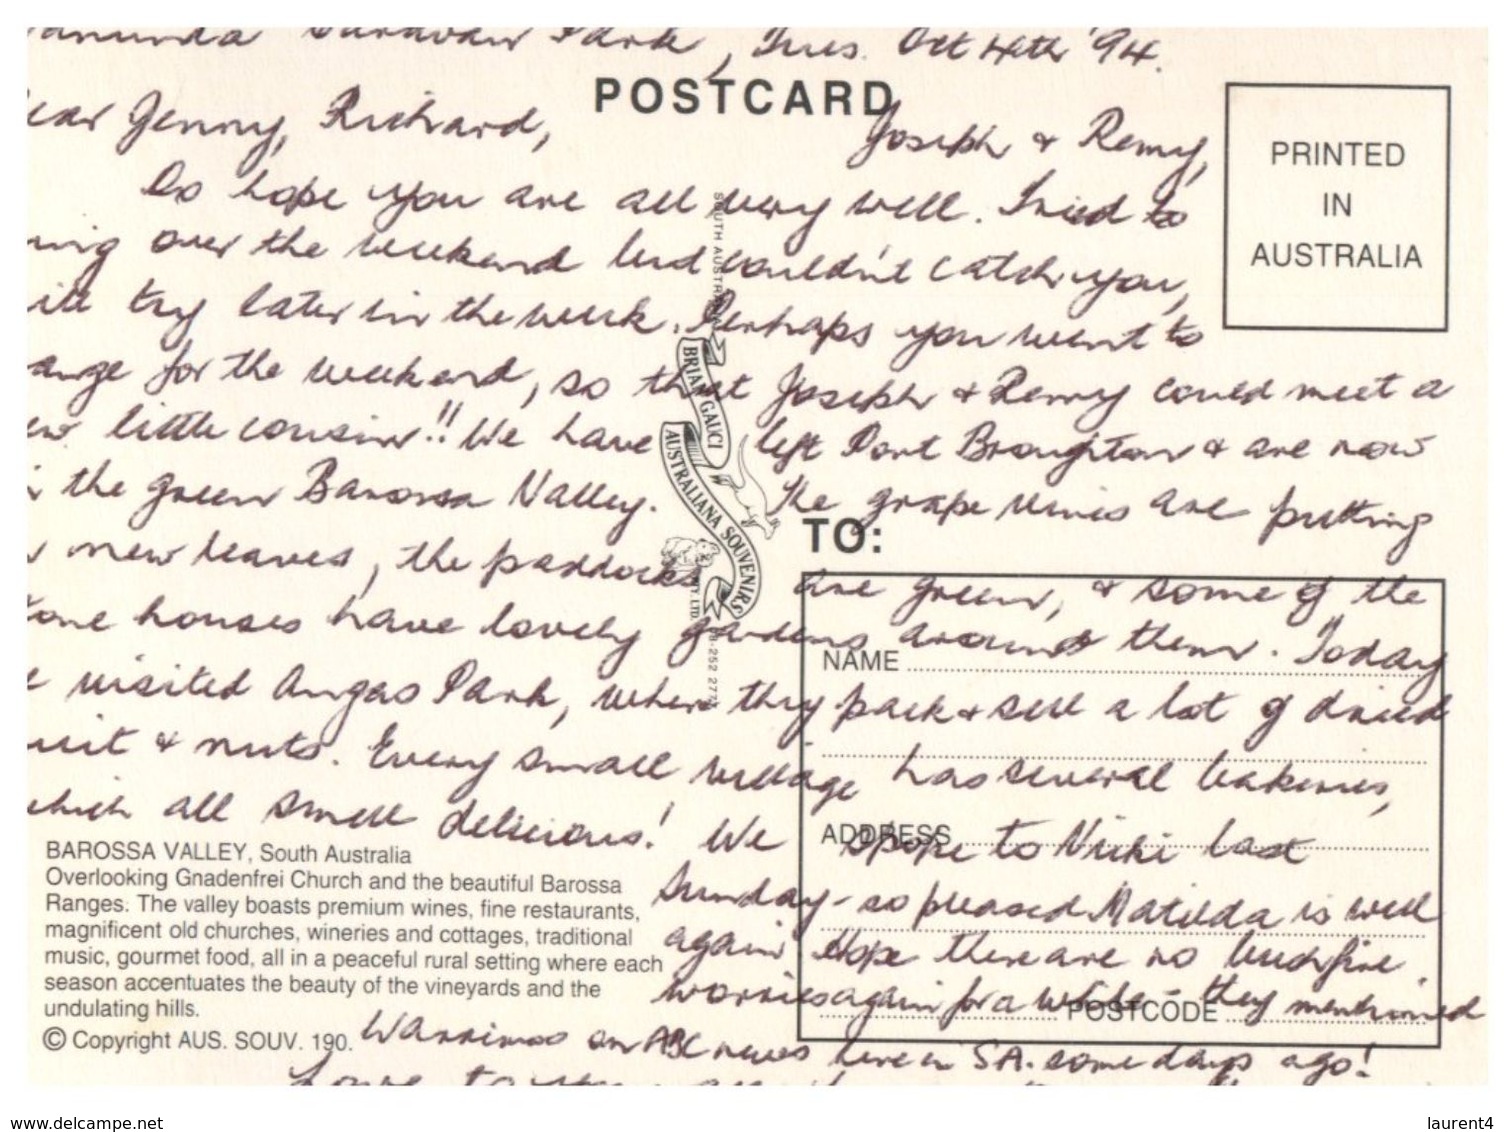 Caravan Park, Tues. Oct 4th '94.
POSTCARD
Jenny, Richard, Joseph & Remy,
Do hope you are all very well. Tried to
over the weekend but couldn't catch you,
try later in the week. Perhaps you went to
for the weekend, so that Joseph & Remy could meet a
little cousin!! We have left Port Broughton & are now
the green Barossa Valley. The grape vines are putting
new leaves, the paddocks are green, & some of the
houses have lovely gardens around them. Today
visited Angas Park, where they pack & sell a lot of dried
& nuts. Every small village has several bakeries,
which all smell delicious! We spoke to Nicki last
Sunday - so pleased Matilda is well
again. Hope there are no bushfire
worries again for a while - they mentioned
Warrimoo on ABC news here in SA. some days ago!
Love to
PRINTED
IN
AUSTRALIA
SOUTH AUSTR
BRIAN GAUCI
AUSTRALIANA SOUVENIRS
PTY. LTD.
TO:
NAME
ADDRESS
POSTCODE
BAROSSA VALLEY, South Australia
Overlooking Gnadenfrei Church and the beautiful Barossa
Ranges. The valley boasts premium wines, fine restaurants,
magnificent old churches, wineries and cottages, traditional
music, gourmet food, all in a peaceful rural setting where each
season accentuates the beauty of the vineyards and the
undulating hills.
© Copyright AUS. SOUV. 190.
www.delcampe.net
laurent4